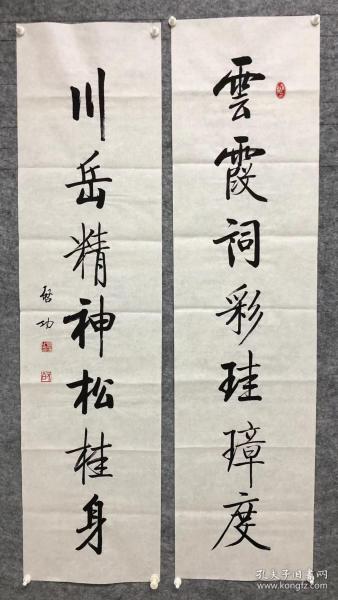 雲霞詞彩珪璋度
川岳精神松桂身
啓功
孔夫子旧书网
www.kongfz.com